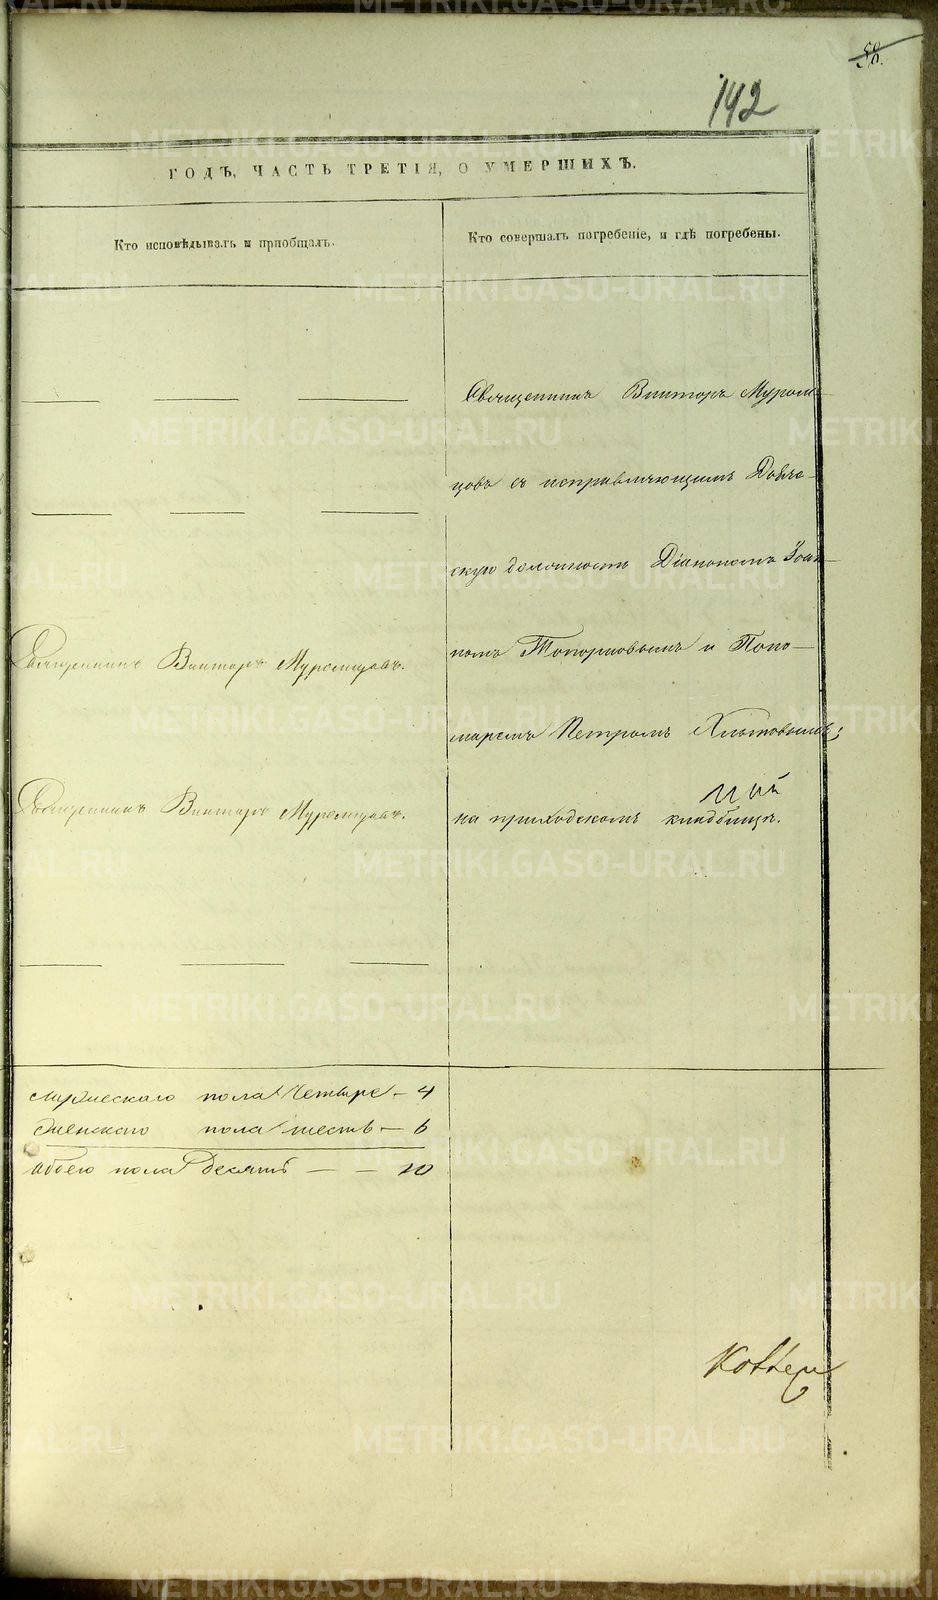 58.
142
ГОДЪ, ЧАСТЬ ТРЕТІЯ, О УМЕРШИХЪ.
Кто исповѣдывалъ и пріобщалъ.
Кто совершалъ погребеніе, и гдѣ погребены.
Священникъ Викторъ Муром-
цовъ съ исправляющимъ Дьяче-
скую должность Діакономъ Іоан-
номъ Топорковымъ и Поно-
маремъ Петромъ Хлытовымъ;
на приходскомъ кладбищѣ.
Священникъ Викторъ Муромцовъ.
Священникъ Викторъ Муромцовъ.
Мужескаго пола Четыре - 4
Женскаго пола шесть - 6
Обоего пола Десять - - 10
METRIKI.GASO-URAL.RU